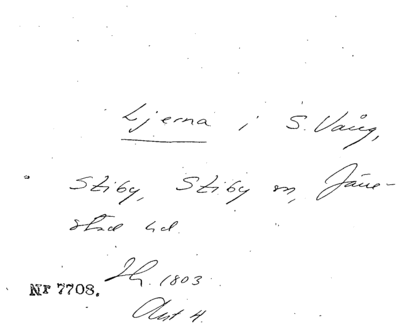 Ljerna i S. Vång,
Stiby, Stiby sn, Järre-
stad hd.
Nr 7708.
Lh. 1803
Akt 4.